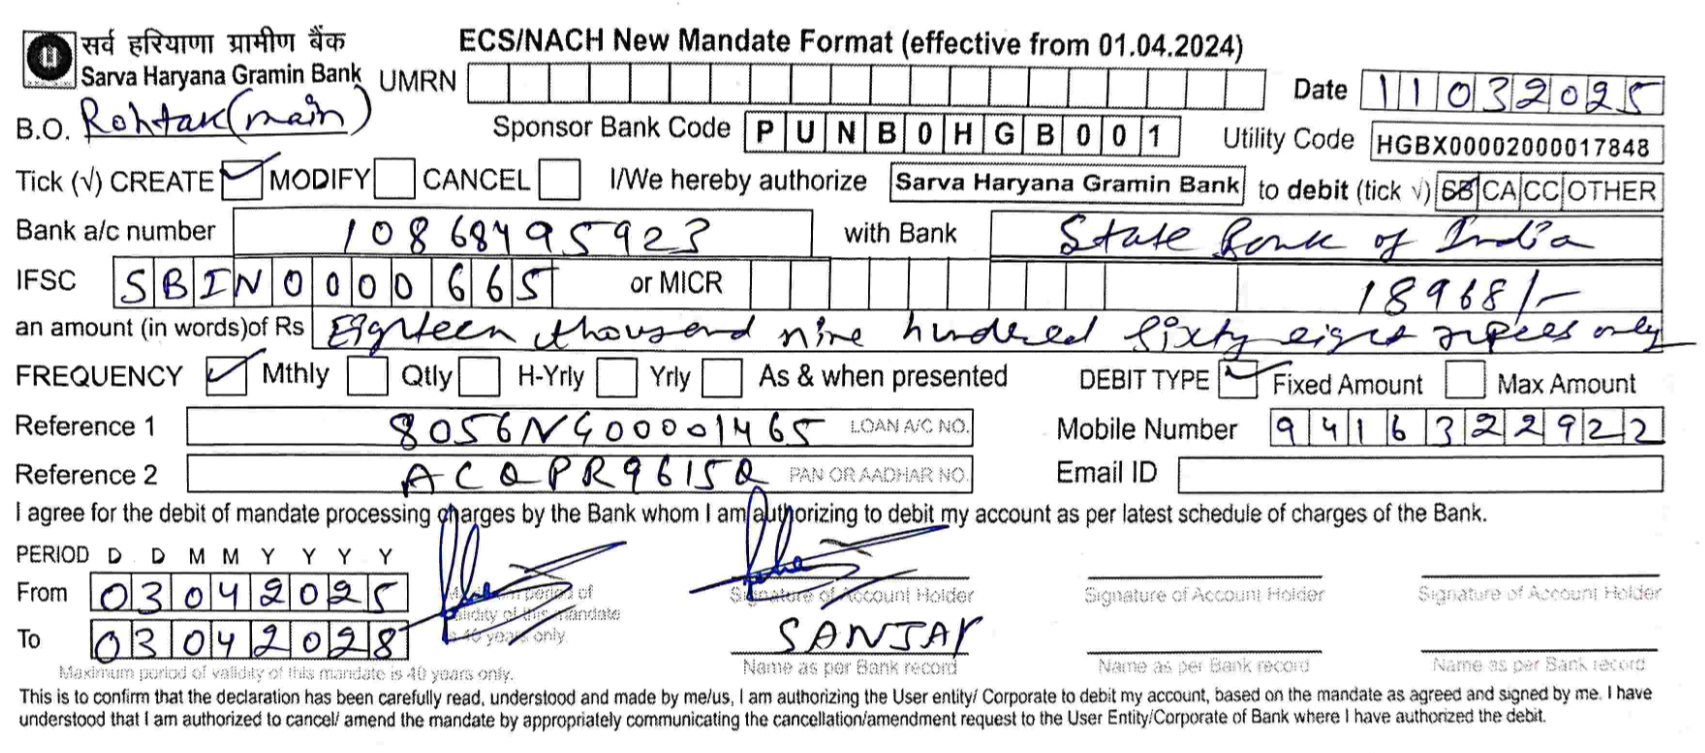 सर्व हरियाणा ग्रामीण बैंक
Sarva Haryana Gramin Bank
ECS/NACH New Mandate Format (effective from 01.04.2024)
UMRN
Date 11032025
B.O. Rohtak (main)
Sponsor Bank Code PUNB0HGB001
Utility Code HGBX00002000017848
Tick (√) CREATE ✓ MODIFY CANCEL I/We hereby authorize Sarva Haryana Gramin Bank to debit (tick √) SB CA CC OTHER
Bank a/c number 10868495923 with Bank State Bank of India
IFSC SBIN0000665 or MICR 18968/-
an amount (in words)of Rs Eighteen thousand nine hundred sixty eight rupees only
FREQUENCY ✓ Mthly Qtly H-Yrly Yrly As & when presented DEBIT TYPE ✓ Fixed Amount Max Amount
Reference 1 8056NG00001465 LOAN A/C NO. Mobile Number 9416322922
Reference 2 ACQPR9615Q PAN OR AADHAR NO. Email ID
I agree for the debit of mandate processing charges by the Bank whom I am authorizing to debit my account as per latest schedule of charges of the Bank.
PERIOD D D M M Y Y Y Y
From 03042025
To 03042028
Maximum period of validity of this mandate is 40 years only.
period of
validity of this mandate
40 years only.
Signature of Account Holder Signature of Account Holder Signature of Account Holder
SANJAY
Name as per Bank record Name as per Bank record Name as per Bank record
This is to confirm that the declaration has been carefully read, understood and made by me/us, I am authorizing the User entity/ Corporate to debit my account, based on the mandate as agreed and signed by me. I have
understood that I am authorized to cancel/ amend the mandate by appropriately communicating the cancellation/amendment request to the User Entity/Corporate of Bank where I have authorized the debit.